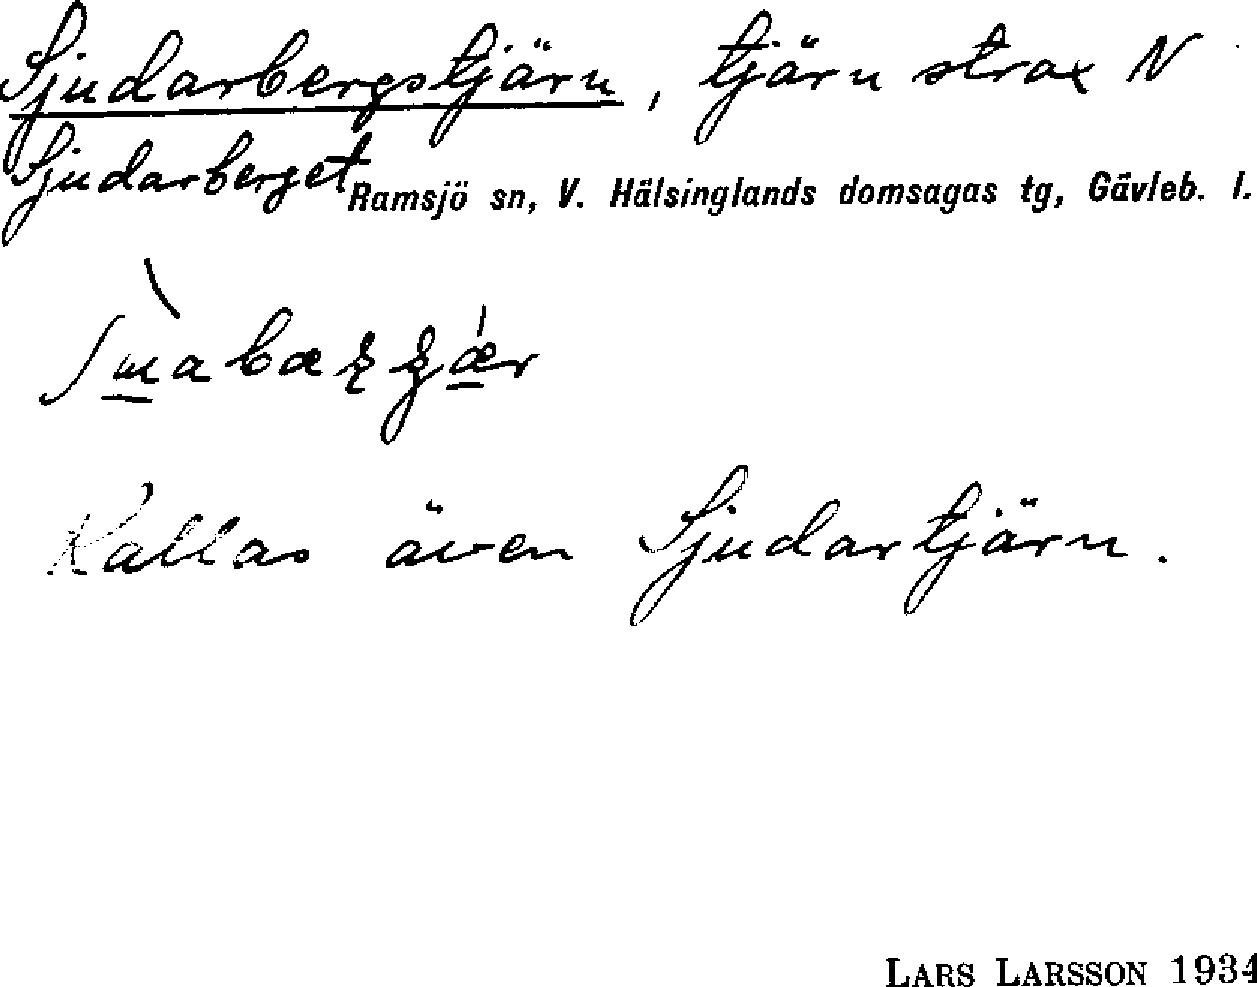 Sjudarbergstjärn, tjärn strax N
Sjudarberget
Ramsjö sn, V. Hälsinglands domsagas tg, Gävleb. l.
Kallas även Sjudartjärn.
LARS LARSSON 1934